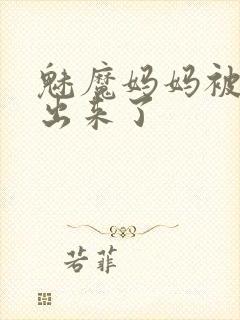 魅魔妈妈被
出来了
若菲